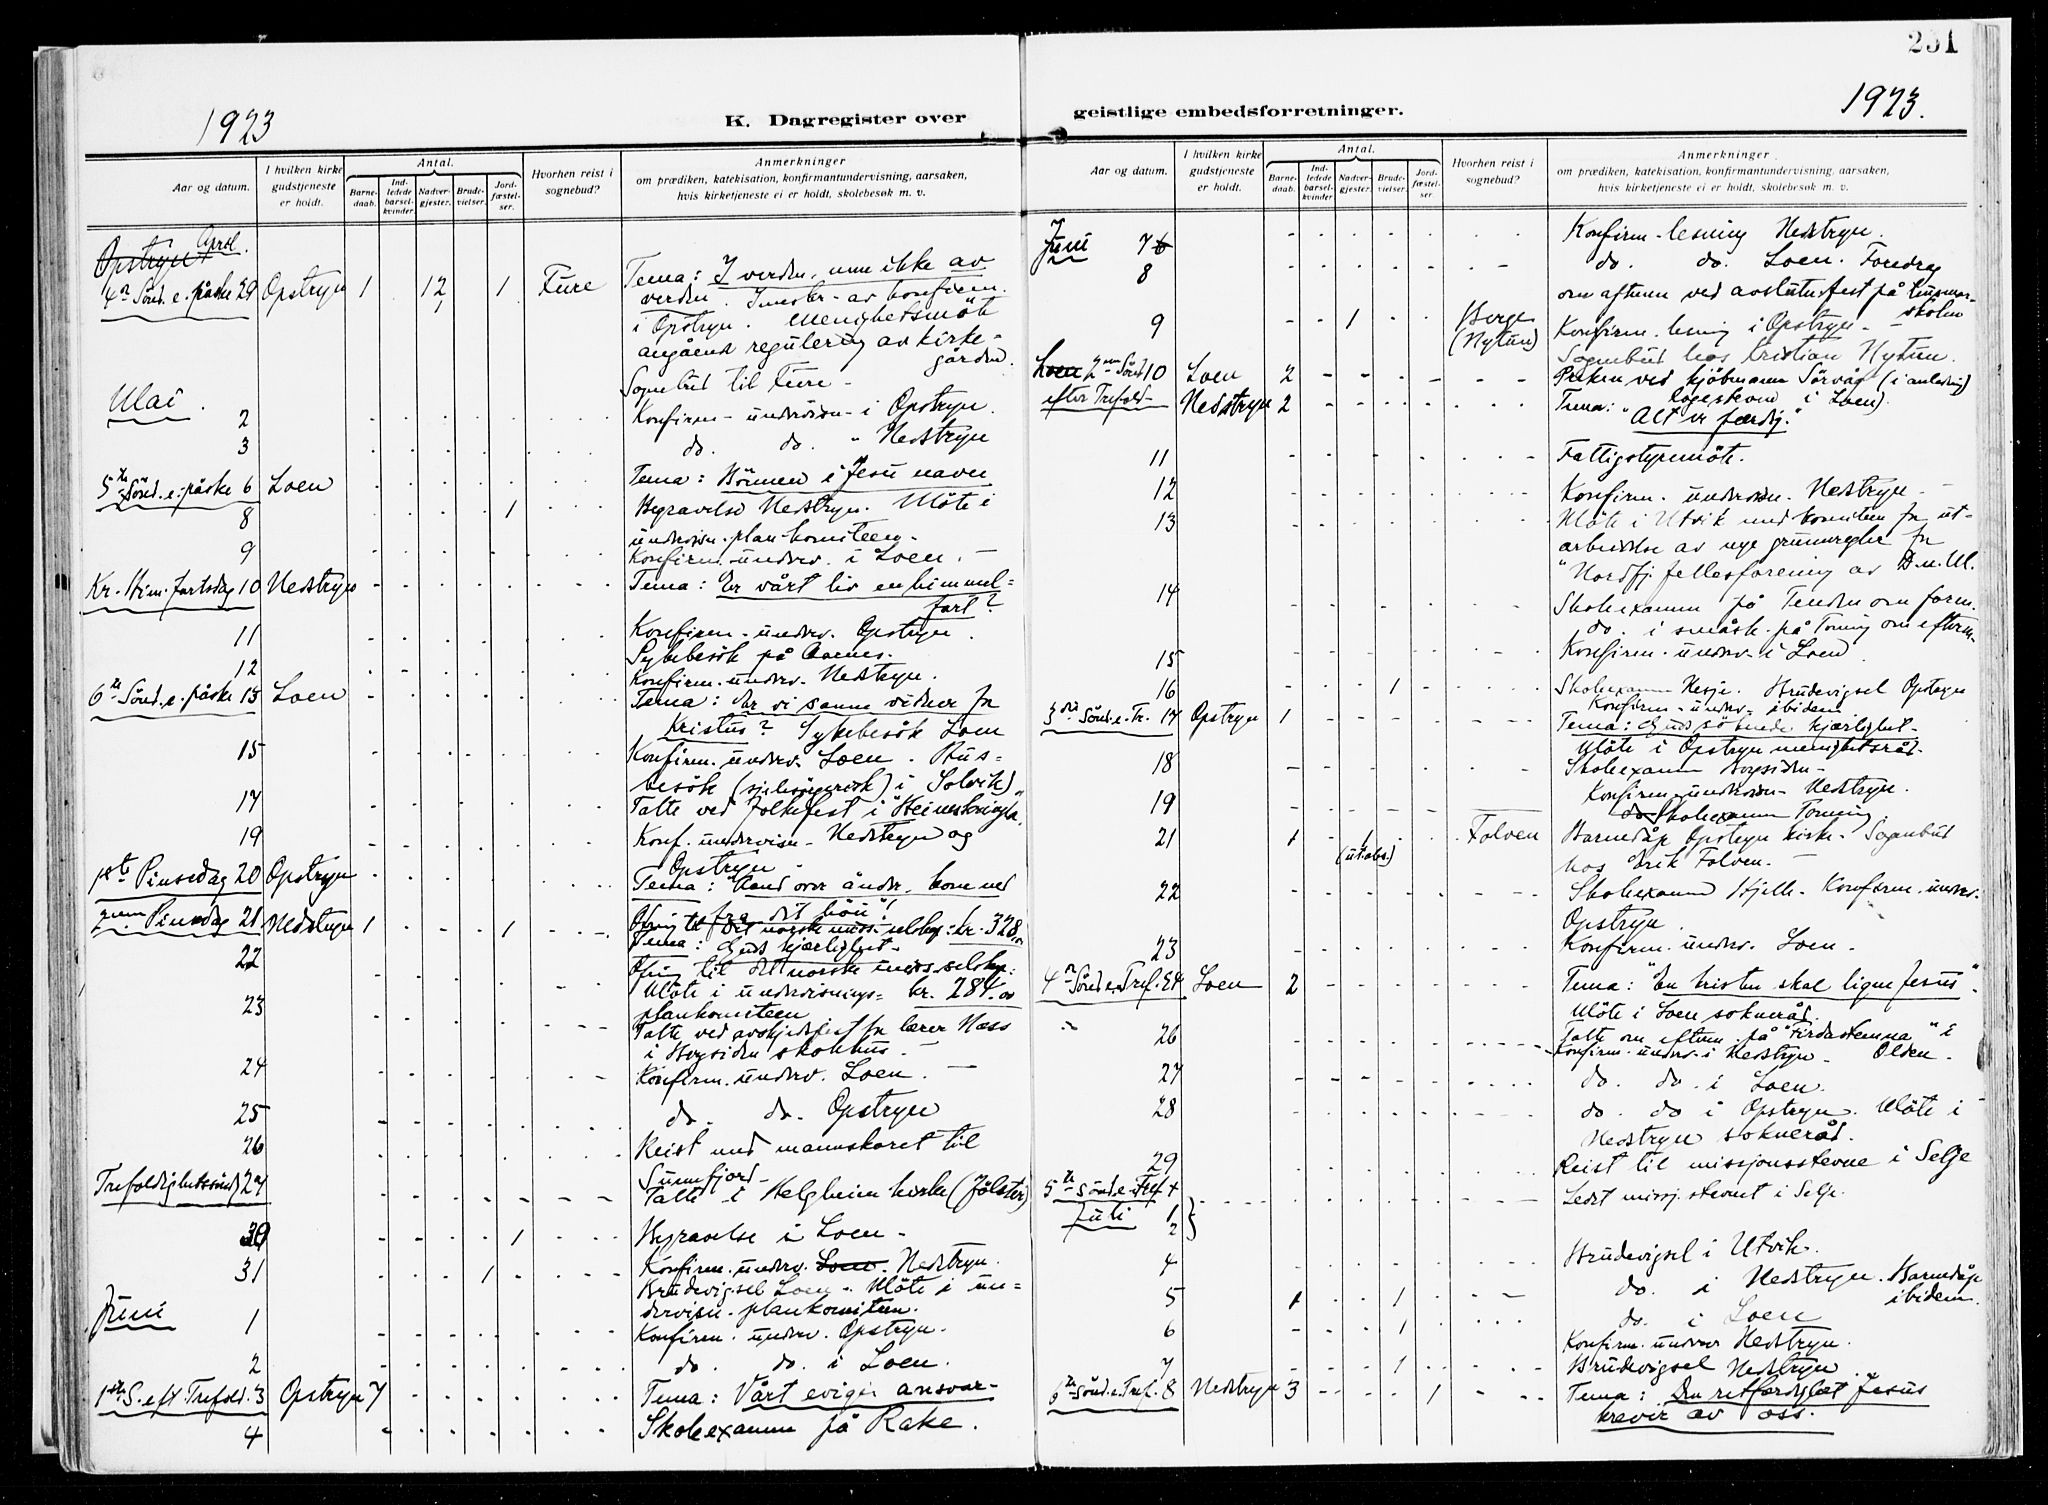 231
1923
K. Dagregister over
geistlige embedsforretninger.
1923.
Aar og datum.
I hvilken kirke gudstjeneste er holdt.
Antal.
Barnedaab.
Indledede barselkvinder.
Nadvergjester.
Brudevielser.
Jordfæstelser.
Hvorhen reist i sognebud?
Anmerkninger
om prædiken, katekisation, konfirmantundervisning, aarsaken,
hvis kirketjeneste ei er holdt, skolebesøk m. v.
Opstryn April.
4n Sönd. e. påske 29 Opstryn 1 12 1 Fure Tema: I verden, men ikke av
verden. Innskr. av konfirm.
i Opstryn. Menighetsmöte
angående regulering av kirke-
gården.
Sognebud til Fure -
Mai.
2 Konfirm - undervisn - i Opstryn.
3 do do. " Nedstryn
5te Sönd. e. påske 6 Loen Tema: Bönnen i Jesu navn
8 1 Begravelse Nedstryn. Möte i
undervisn. plan-komiteen.
9 Konfirm. underv. i Loen. -
Kr. Himmelfartsdag 10 Nedstryn Tema: Er vårt liv en himmel-
fart?
11 Konfirm - underv. Opstryn.
Sykebesök på Aarnes.
12 Konfirm. underv. Nedstryn.
6te Sönd. e. påske 13 Loen Tema: Er vi sanne vidner for
Kristus? Sykebesök Loen
15 Konfirm. underv. Loen. Hus-
besök (sjelesörgerisk) i Solvik)
17 Talte ved folkefest i "Heimskringla".
19 Konf. undervisn - Nedstryn og
Opstryn -
1ste Pinsedag 20 Opstryn Tema: "Aand over ånder, kom ned
fra det höie"!
Ofring til det norske miss. selskap: kr. 328.00
2nen Pinsedag 21 Nedstryn 1 1 Tema: Guds kjærlighet -
Ofring til det norske miss. selskap:
kr. 284.00
22 Möte i undervisnings-
plankomiteen
23 Talte ved avskjedsfest for lærer Næss
i Hogsiden skolehus. -
24 Konfirm. underv. Loen. -
25 do. do. Opstryn
26 Reist med mannskoret til
Sunnfjord -
Trefoldighetssönd 27 Talte i Helgheim kirke (Jölster)
30 1 Begravelse i Loen -
31 1 Konfirm. underv. Loen. Nedstryn.
Brudevigsel Loen. Möte i un-
dervisn. plankomiteen.
Juni
1 Konfirm. underv. Opstryn.
2 do. do. i Loen.
1ste S. eft. Trefold. 3 Opstryn 7 Tema: Vårt evige ansvar-
4 Skoleexamen på Rake.
Aar og datum.
I hvilken kirke gudstjeneste er holdt.
Antal.
Barnedaab.
Indledede barselkvinder
Nadvergjester.
Brudevielser.
Jordfæstelser.
Hvorhen reist i sognebud?
Anmerkninger
om prædiken, katekisation, konfirmantundervisning, aarsaken,
hvis kirketjeneste ei er holdt, skolebesøk m. v.
Juni 7 Konfirm - lesning Nedstryn.
8 do. do. Loen. Foredrag
om aftenen ved avslutn.fest på husmor-
skolen
9 1 Berge (Nytun) Konfirm. lesning i Opstryn -
Sognebud hos Kristian Nytun.
Loen 2nen Sönd 10 Loen 2 Preken ved kjöbmann Sörvåg (i anledning)
efter Trefold - Nedstryn 2 i Loen)
Tema: "Alt er færdig."
11 Fattigstyremöte.
12 Konfirm. undervisn. Nedstryn -
13 Möte i Utvik med komiteen for ut-
arbeidelse av nye grunnregler for
"Nordfj. fellesforening av D.n.M.
14 Skoleexamen på Tenden om form.
do. i småsk. på Toning om efterm.
15 Konfirm. underv - i Loen
16 1 Skoleexamen Hesje. Brudevigsel Opstryn
Konfirm - underv - ibidem
3die Sönd. e. Tr. 17 Opstryn 1 Tema: Guds sökende kjærlighet -
Möte i Opstryn menighetsråd -
18 Skoleexamen Hogsiden -
Konfirm - undervisn - Nedstryn.
19 do Skoleexamen Toning
21 1 1 (utabs.) Folven Barnedåp Opstryn kirke - Sognebud
hos Erik Folven. -
22 Skoleexamen Hjelle - Konfirm. underv.
Opstryn.
23 Konfirm. underv. Loen -
4n Sönd. e. Tref. 24 Loen 2 Tema: "En kristen skal ligne Jesus".
Möte i Loen sokneråd.
26 Talte om eftem. på "Firdastemna" i
Olden -
Konfirm. underv. i Nedstryn -
27 do. do. i Loen.
28 do. do i Opstryn. Möte i
Nedstryn sokneråd.
29 Reist til missjonsstevne i Selje
5te Sönd. e. Tref + Ledet missj. stevnet i Selje.
Juli 1
2
4 Brudevigsel i Utvik.
5 1 1 do. i Nedstryn. Barnedåp
ibidem.
6 1 do. i Loen
Konfirm. underv Nedstryn.
7 1 Brudevigsel Nedstryn.
6te Sönd. e. Tref. 8 Nedstryn 3 1 Tema: Den retferdighet Jesus
krever av oss.